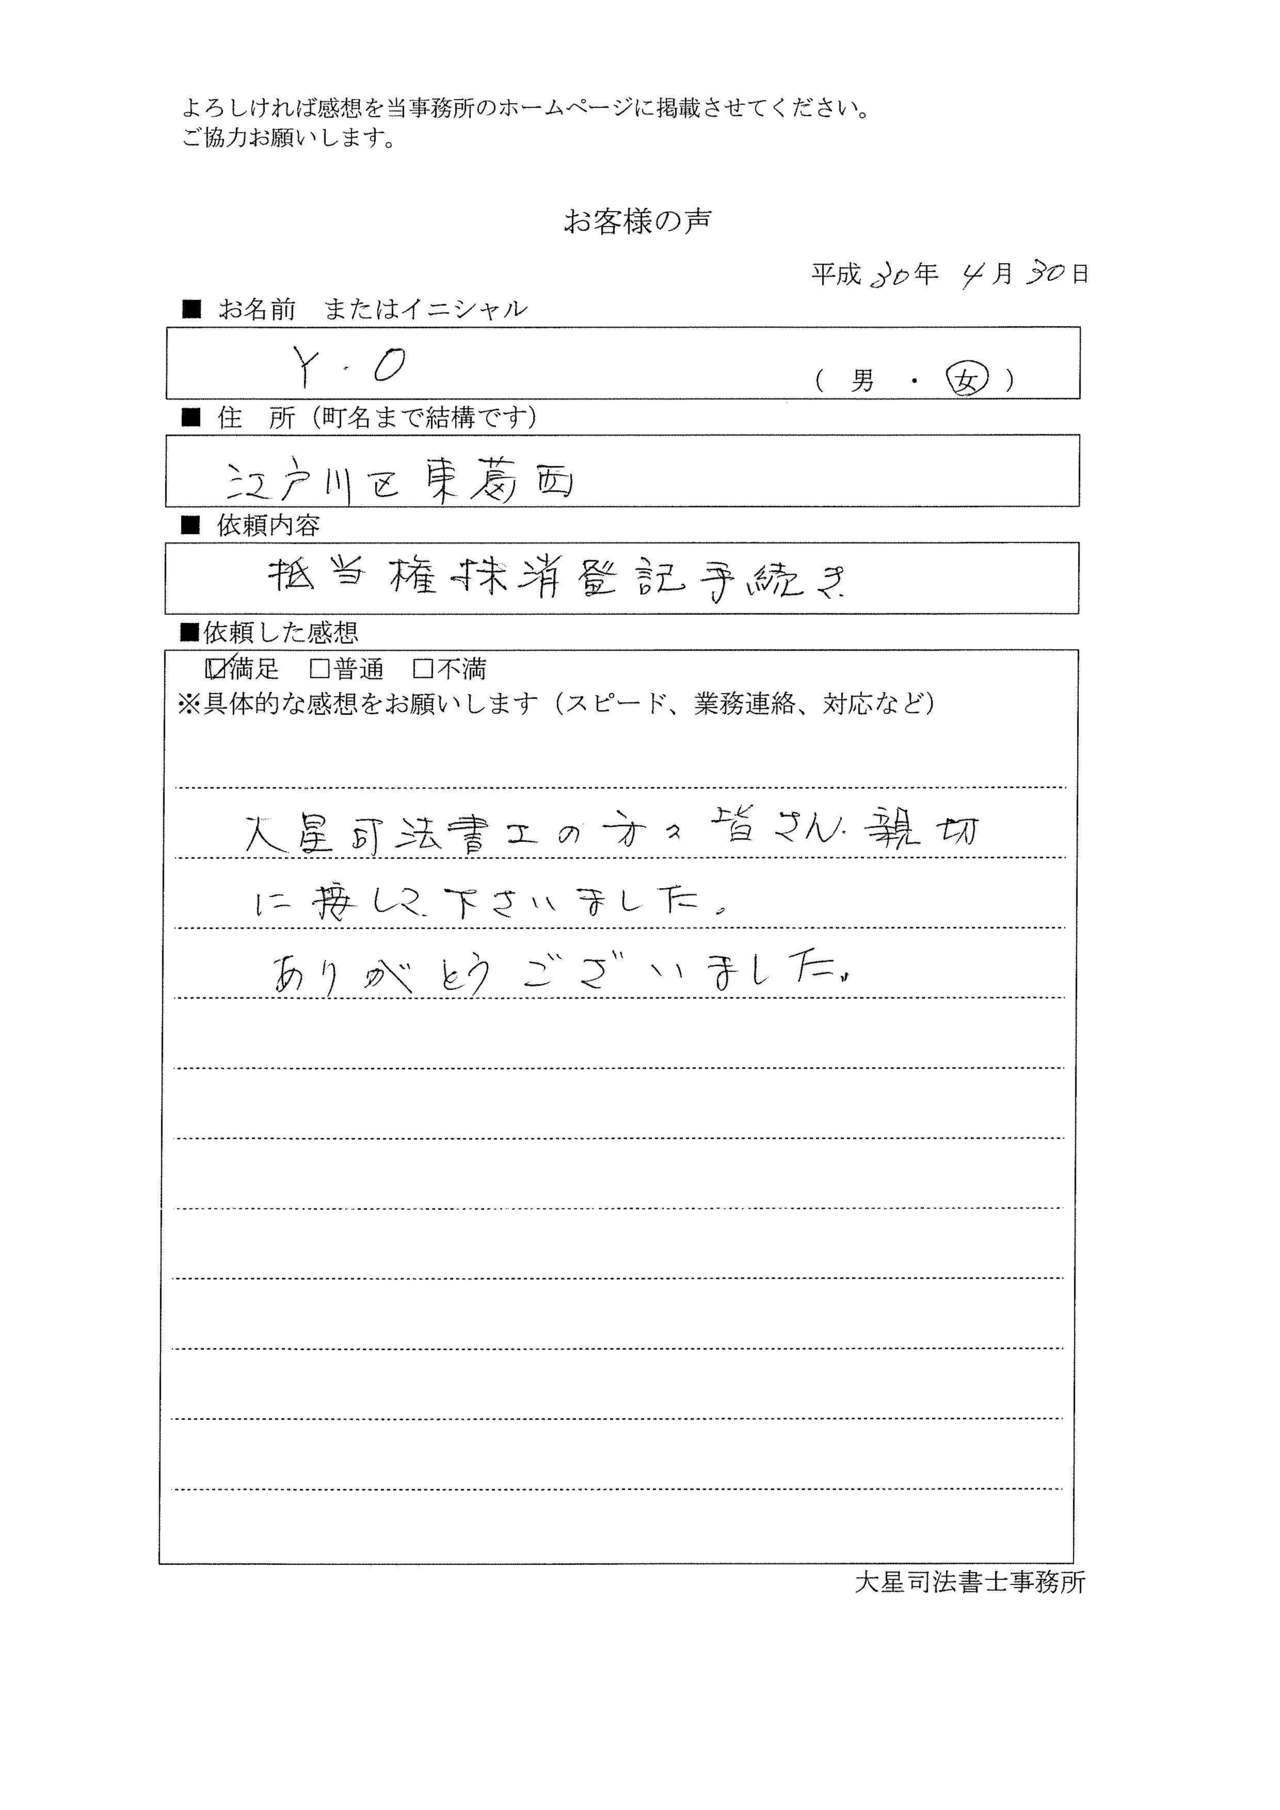 よろしければ感想を当事務所のホームページに掲載させてください。
ご協力お願いします。
お客様の声
平成30年 4月30日
■ お名前 またはイニシャル
Y・O （ 男 ・ 女 ）
■ 住 所（町名まで結構です）
江戸川区東葛西
■ 依頼内容
抵当権抹消登記手続き
■依頼した感想
☑満足 □普通 □不満
※具体的な感想をお願いします（スピード、業務連絡、対応など）
大星司法書士の方々皆さん親切
に接して下さいました。
ありがとうございました。
大星司法書士事務所